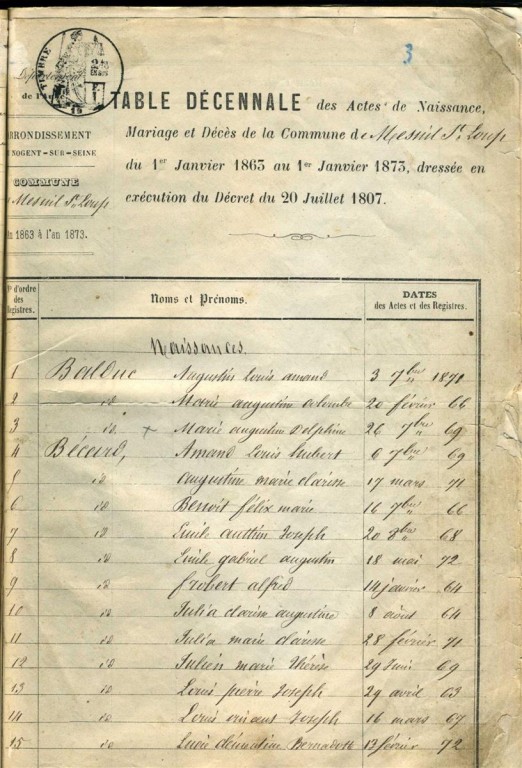 3
TIMBRE
Département
de l'Au
RRONDISSEMENT
NOGENT-SUR-SEINE
COMMUNE
Mesnil St. Loup
1863 à l'an 1873.
TABLE DÉCENNALE des Actes de Naissance,
Mariage et Décès de la Commune de Mesnil St. Loup
du 1er Janvier 1863 au 1er Janvier 1873, dressée en
exécution du Décret du 20 Juillet 1807.
d'ordre des Registres. Noms et Prénoms. DATES des Actes et des Registres.
Naissances.
1 Balduc Augustin Louis amand 3 7bre 1871
2 id Marie augustine colombe 20 février 66
3 id. + Marie augustine Delphine 26 7bre 69
4 Bécard, Amand Louis hubert 6 7bre 69
5 id augustine marie clarisse 17 mars 71
6 id Benoit félix marie 16 7bre 66
7 id Emile Joseph 20 68
8 id Emile gabriel augustin 18 mai 72
9 id frobert alfred 14 janvier 64
10 id Julia clarisse augustine 8 août 64
11 id Julia marie clarisse 28 février 71
12 id Julien marie Thérèse 29 Juin 69
13 id Louis pierre Joseph 29 avril 63
14 id Louis Joseph 16 mars 67
15 id Lucie Bernadett 13 février 72